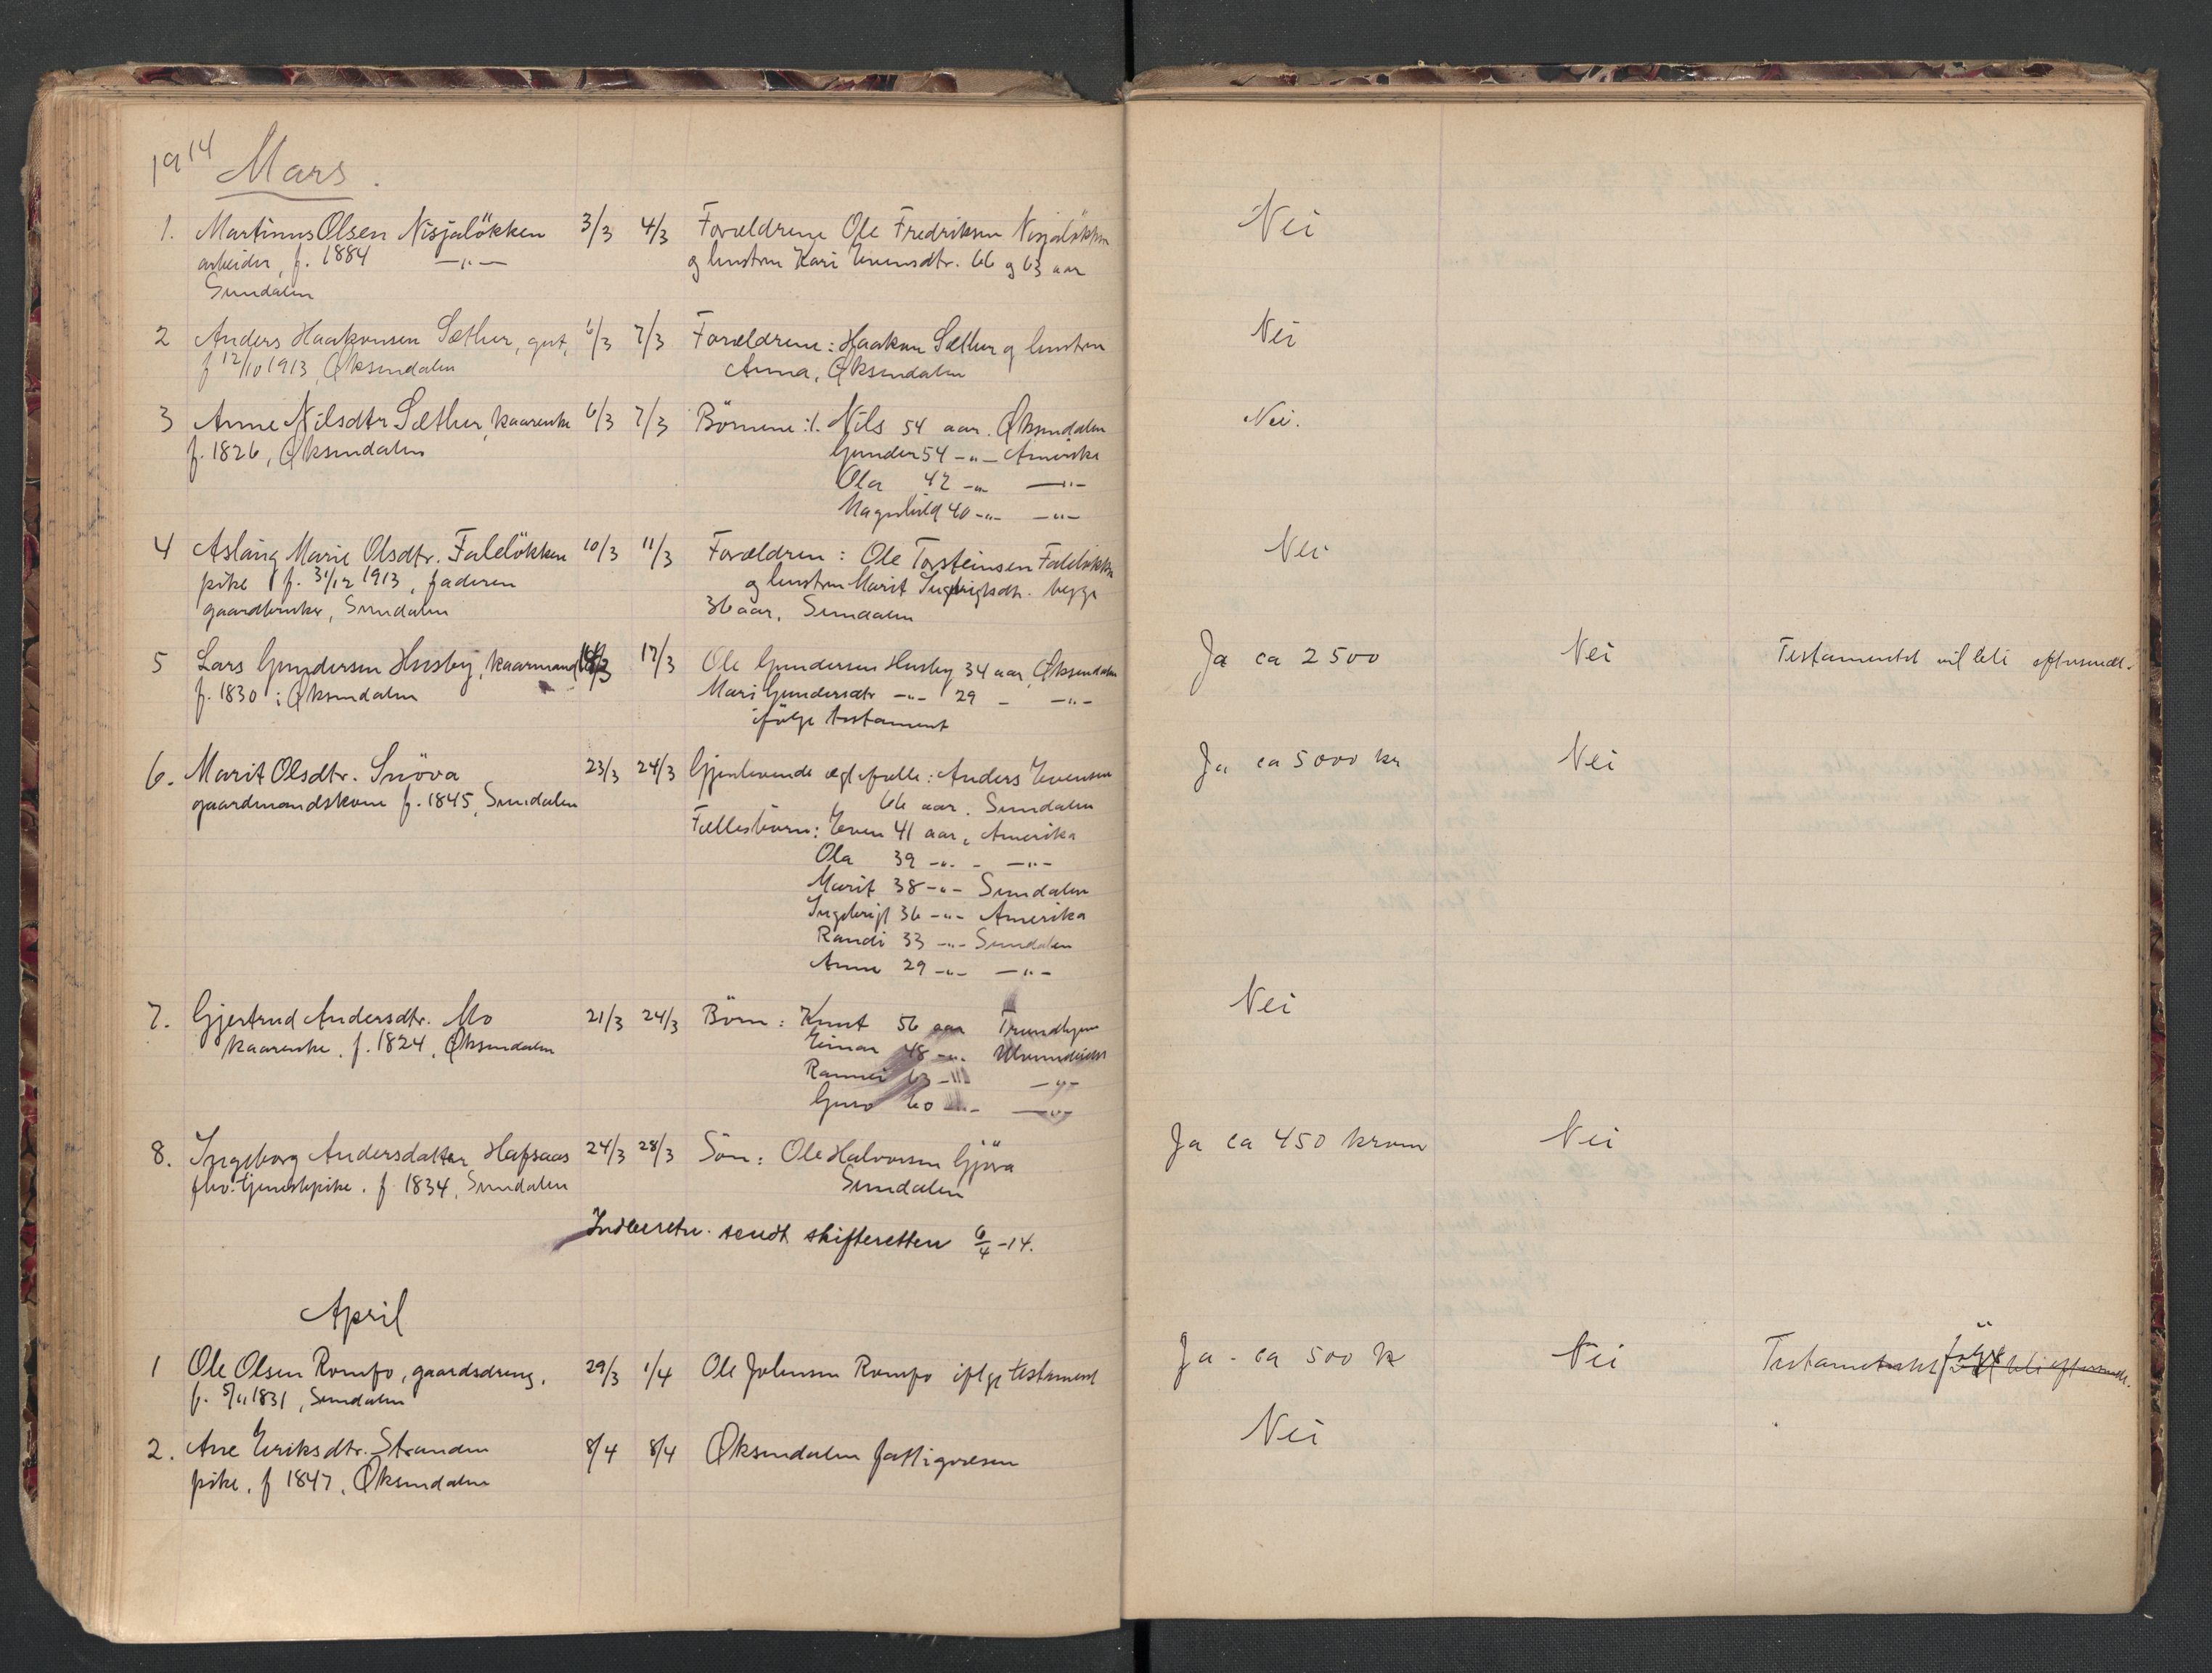 1914 Mars.
1. Martinus Olsen Nisjalökken 3/3 4/3 Forældrene Ole Fredriksen Nisjalökken Nei
arbeider, f. 1884 —„— og hustru Kari Evensdtr. 66 og 63 aar
Sundalen
2 Anders Haakonsen Sæther, gut, 6/3 7/3 Forældrene: Haakon Sæther og hustru Nei
f 12/10 1913, Øksendalen Anna, Øksendalen
3 Anne Nilsdtr Sæther, kaarenke 6/3 7/3 Börnene :/. Nils 54 aar. Øksendalen Nei.
f. 1826, Øksendalen Gunder 54 -„- Amerika
Ola 42 -„- —„-
Magnhild 40 -„- —„-
4 Aslaug Marie Olsdtr. Falelökken 10/3 11/3 Forældrene: Ole Torsteinsen Falelökken Nei
pike f. 31/12 1913, faderen og hustru Marit Ingebrigtsdtr. begge
gaardbruker, Sundalen 36 aar, Sundalen
5 Lars Gundersen Husby, kaarmand 17/3 Ole Gundersen Husby 34 aar, Øksendalen Ja ca 2500 Nei Testamentet vil bli eftersendt.
f. 1830 i Øksendalen Mari Gundersdtr -„- 29 - —„-
ifølge testament
6. Marit Olsdtr. Snöva 23/3 24/3 Gjenlevende ægtefælle: Anders Evensen Ja ca 5000 kr Nei
gaardmandskone f. 1845, Sundalen 66 aar. Sundalen
Fællesbörn: Even 41 aar, Amerika
Ola 39 -„- - —„-
Marit 38 -„- Sundalen
Ingebrigt 36 -„- Amerika
Randi 33 -„- Sundalen
Anne 29 -„- —„-
7. Gjertrud Andersdtr. Mo 21/3 24/3 Börn: Knut 56 aar Trondhjem Nei
kaarenke, f. 1824, Øksendalen Einar 48 -„-
Rannei 63 -„- —„-
Guro 60 -„- —„-
8. Ingeborg Andersdatter Hafsaas 24/3 28/3 Sön: Ole Halvorsen Gjöra Ja ca 450 kroner Nei
fhv. tjenestepike, f. 1834, Sundalen Sundalen
Indberetn. sendt skifteretten 6/4-14.
April
1 Ole Olsen Romfo, gaardsdreng, 29/3 1/4 Ole Johnsen Romfo iflge testament Ja - ca 500 kr Nei Testamentet följer vil bli eftersendt.
f. 5/11 1831, Sundalen
2. Ane Eriksdtr. Stranden 8/4 8/4 Øksendalen fattigvæsen Nei
pike, f 1847, Øksendalen